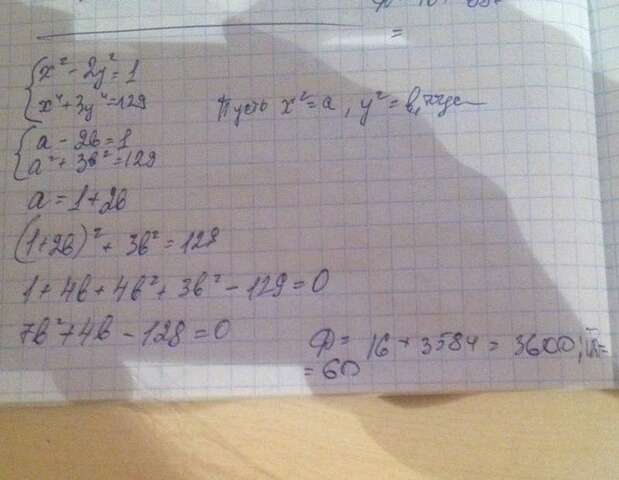 =
x² - 2y² = 1
x⁴ + 3y⁴ = 129 Пусть x² = a, y² = b,
a - 2b = 1
a² + 3b² = 129
a = 1 + 2b
(1 + 2b)² + 3b² = 129
1 + 4b + 4b² + 3b² - 129 = 0
7b² + 4b - 128 = 0 Д = 16 + 3584 = 3600;
= 60